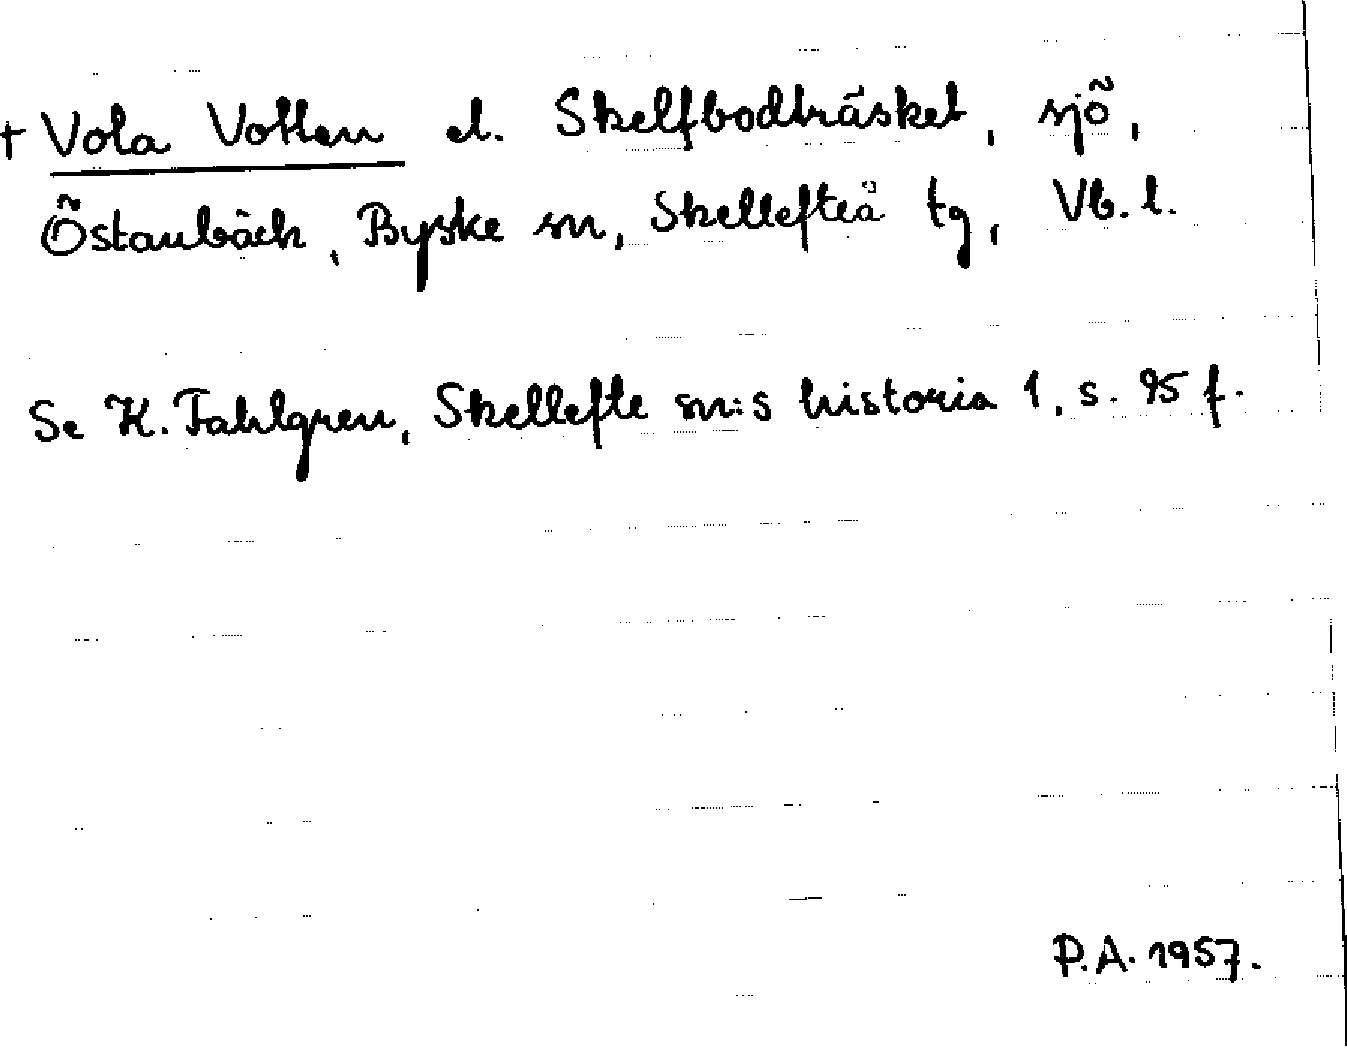 † Vola Votten el. Skelfbodträsket, sjö,
Östanbäck, Byske sn, Skellefteå tg, Vb. l.
Se K. Fahlgren, Skellefte sn:s historia 1, s. 95 f.
P.A. 1957.